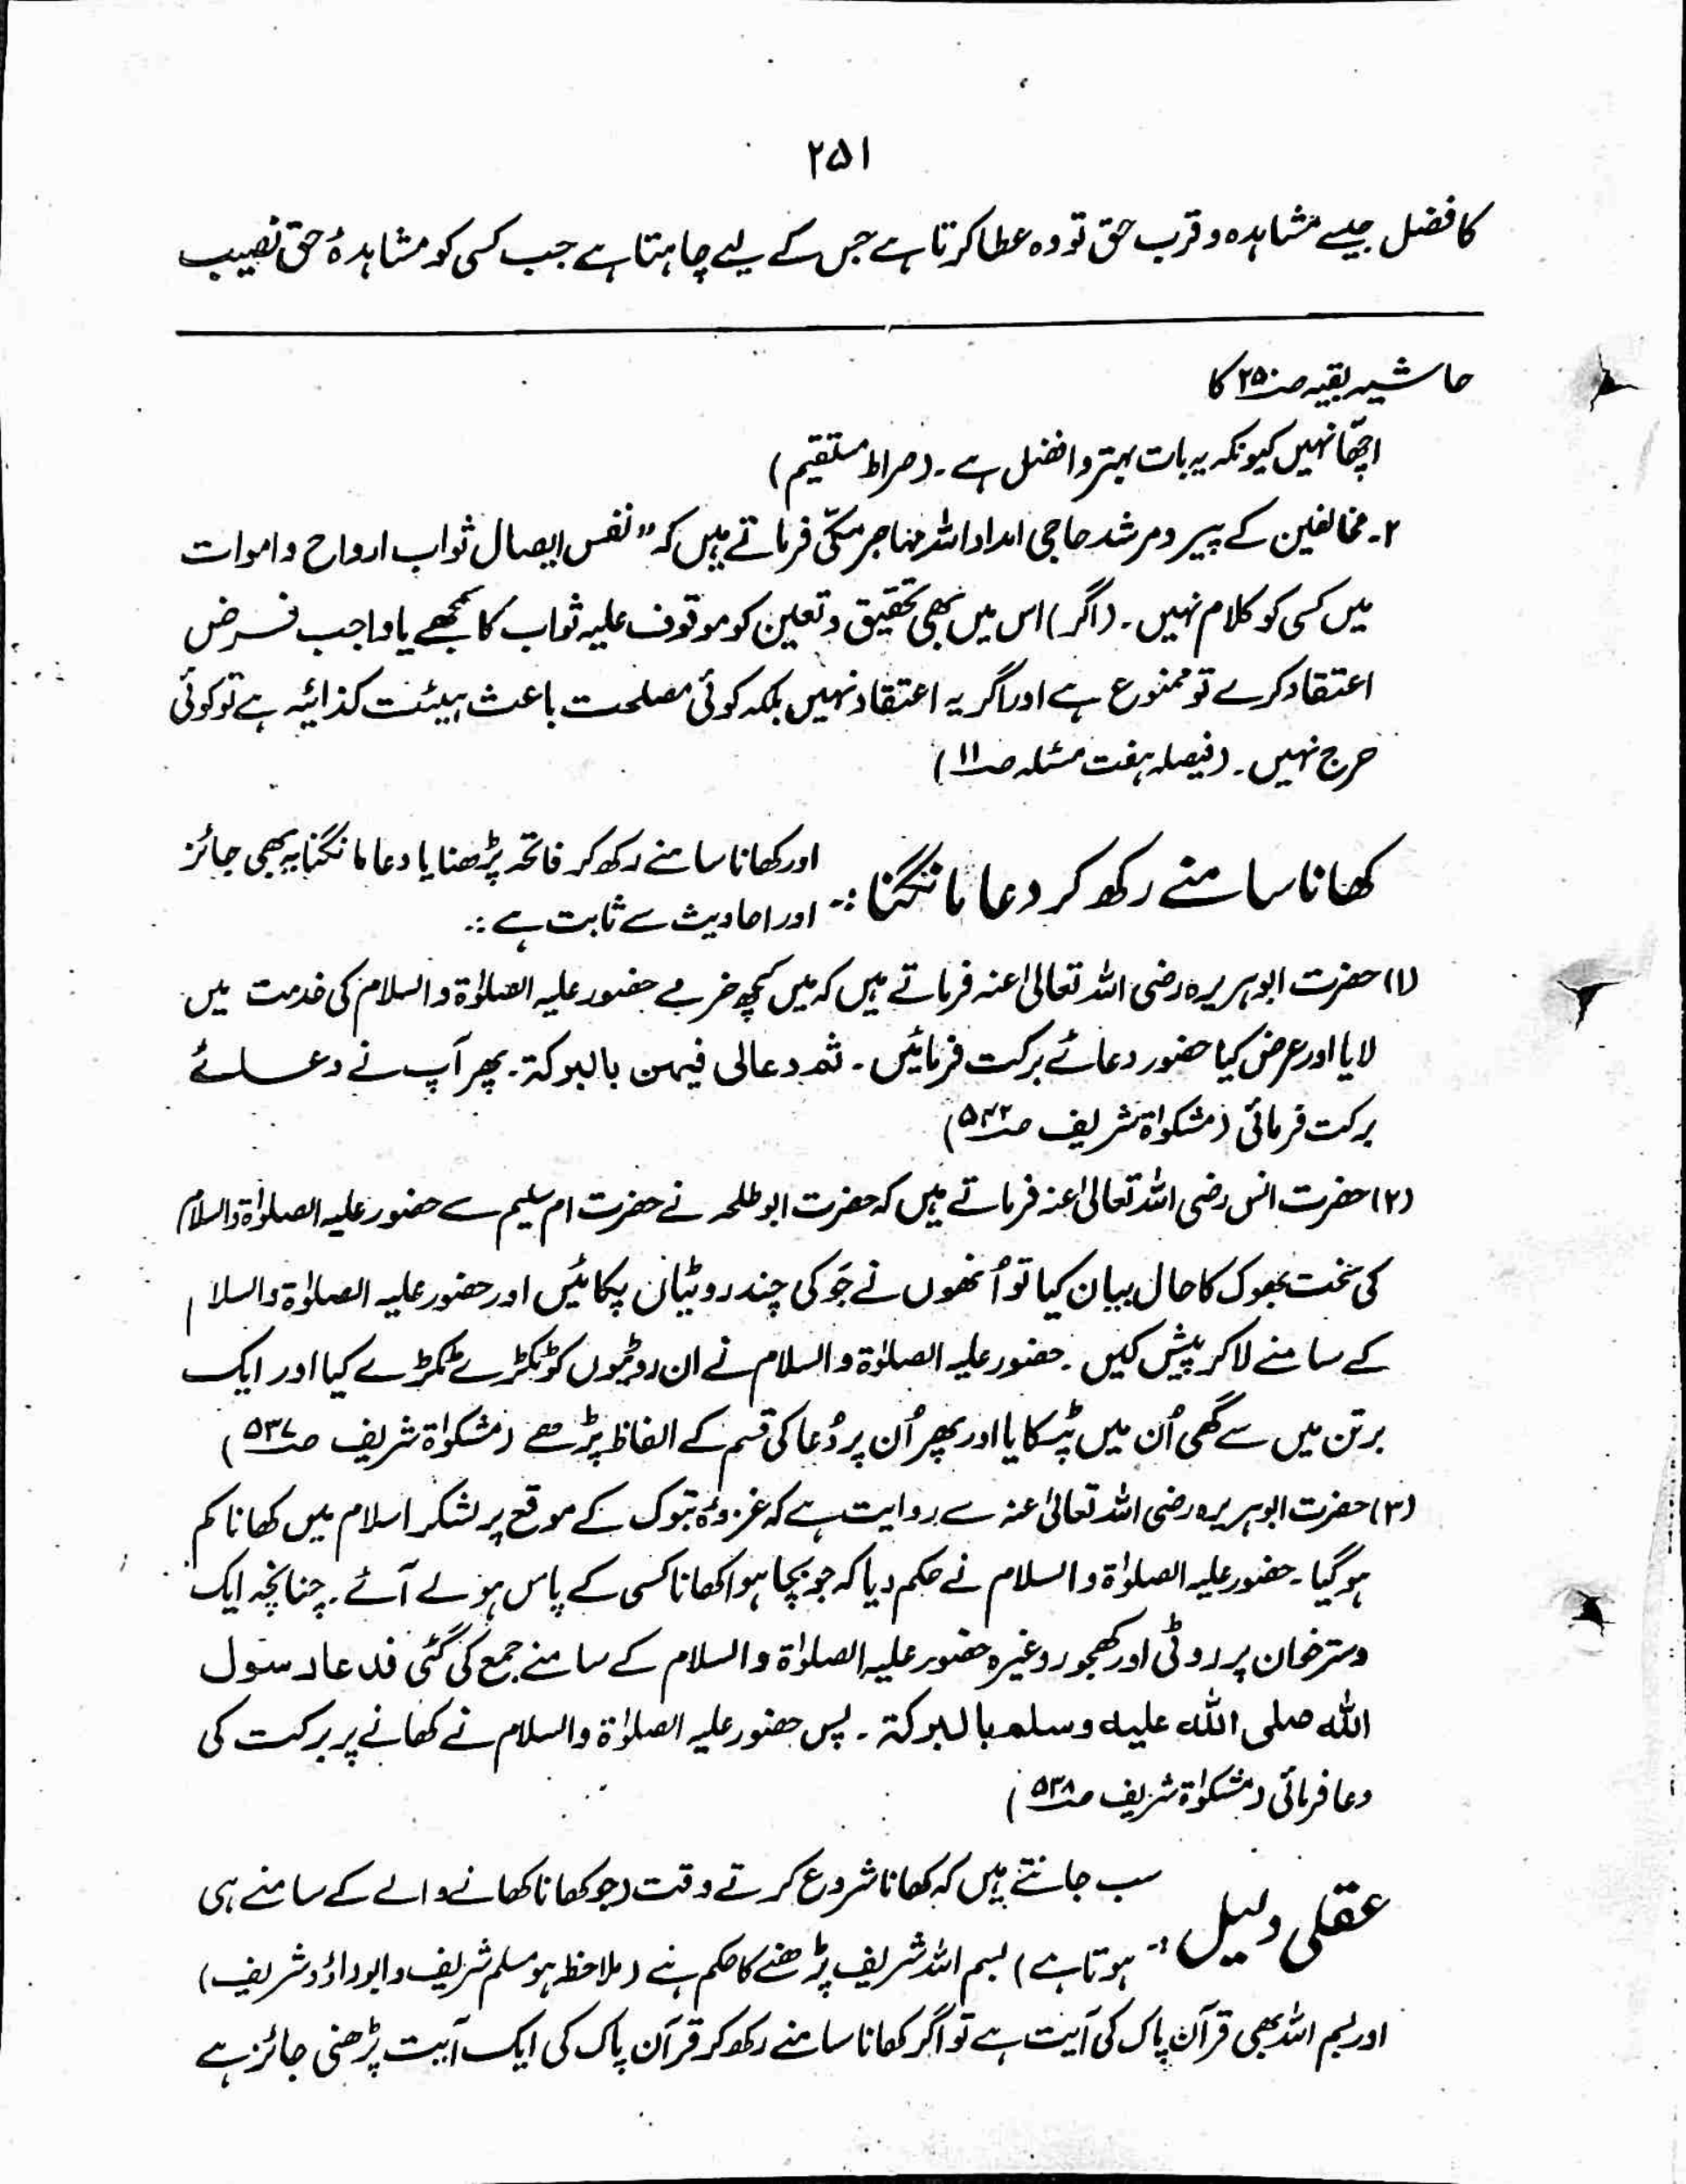 ۲۵۱
کا فضل جیسے مشاہدہ و قرب حق تو وہ عطا کرتا ہے جس کے لیے چاہتا ہے جب کسی کو مشاہدۂ حق نصیب
حاشیہ بقیہ صـ۲۵۰ کا
اچھّا نہیں کیونکہ یہ بات بہتر و افضل ہے۔ (صراط مستقیم)
۲۔ مخالفین کے پیر و مرشد حاجی امداد اللہ مہاجر مکّی فرماتے ہیں کہ "نفس ایصال ثواب ارواح و اموات
میں کسی کو کلام نہیں۔ (اگر) اس میں بھی تحقیق و تعین کو موقوف علیہ ثواب کا سمجھے یا واجب فرض
اعتقاد کرے تو ممنوع ہے اور اگر یہ اعتقاد نہیں بلکہ کوئی مصلحت باعث ہیئت کذائیہ ہے تو کوئی
حرج نہیں۔ (فیصلہ ہفت مسئلہ صـ۱۱)
کھانا سامنے رکھ کر دعا مانگنا :- اور کھانا سامنے رکھ کر فاتحہ پڑھنا یا دعا مانگنا یہ بھی جائز
اور احادیث سے ثابت ہے :.
(۱) حضرت ابوہریرہ رضی اللہ تعالیٰ عنہ فرماتے ہیں کہ میں کچھ خرمے حضور علیہ الصلوٰۃ والسلام کی خدمت میں
لایا اور عرض کیا حضور دعائے برکت فرمائیں۔ ثم دعا لی فیہن بالبرکۃ۔ پھر آپ نے دعائے
برکت فرمائی (مشکوٰۃ شریف صـ۵۴۲)
(۲) حضرت انس رضی اللہ تعالیٰ عنہ فرماتے ہیں کہ حضرت ابو طلحہ نے حضرت ام سلیم سے حضور علیہ الصلوٰۃ والسلام
کی سخت بھوک کا حال بیان کیا تو اُنھوں نے جَو کی چند روٹیاں پکائیں اور حضور علیہ الصلوٰۃ والسلام
کے سامنے لا کر پیش کیں۔ حضور علیہ الصلوٰۃ والسلام نے ان روٹیوں کو ٹکڑے ٹکڑے کیا اور ایک
برتن میں سے گھی اُن میں ٹپکایا اور پھر اُن پر دُعا کی قسم کے الفاظ پڑھے (مشکوٰۃ شریف صـ۵۳۷)
(۳) حضرت ابوہریرہ رضی اللہ تعالیٰ عنہ سے روایت ہے کہ غزوۂ تبوک کے موقع پر لشکر اسلام میں کھانا کم
ہو گیا۔ حضور علیہ الصلوٰۃ والسلام نے حکم دیا کہ جو بچا ہوا کھانا کسی کے پاس ہو لے آئے۔ چنانچہ ایک
دسترخوان پر روٹی اور کھجور وغیرہ حضور علیہ الصلوٰۃ والسلام کے سامنے جمع کی گئی فدعا رسول
اللہ صلی اللہ علیہ وسلم بالبرکۃ۔ پس حضور علیہ الصلوٰۃ والسلام نے کھانے پر برکت کی
دعا فرمائی (مشکوٰۃ شریف صـ۵۳۸)
عقلی دلیل :- سب جانتے ہیں کہ کھانا شروع کرتے وقت (جو کھانا کھانے والے کے سامنے ہی
ہوتا ہے) بسم اللہ شریف پڑھنے کا حکم ہے (ملاحظہ ہو مسلم شریف و ابو داؤد شریف)
اور بسم اللہ بھی قرآن پاک کی آیت ہے تو اگر کھانا سامنے رکھ کر قرآن پاک کی ایک آیت پڑھنی جائز ہے